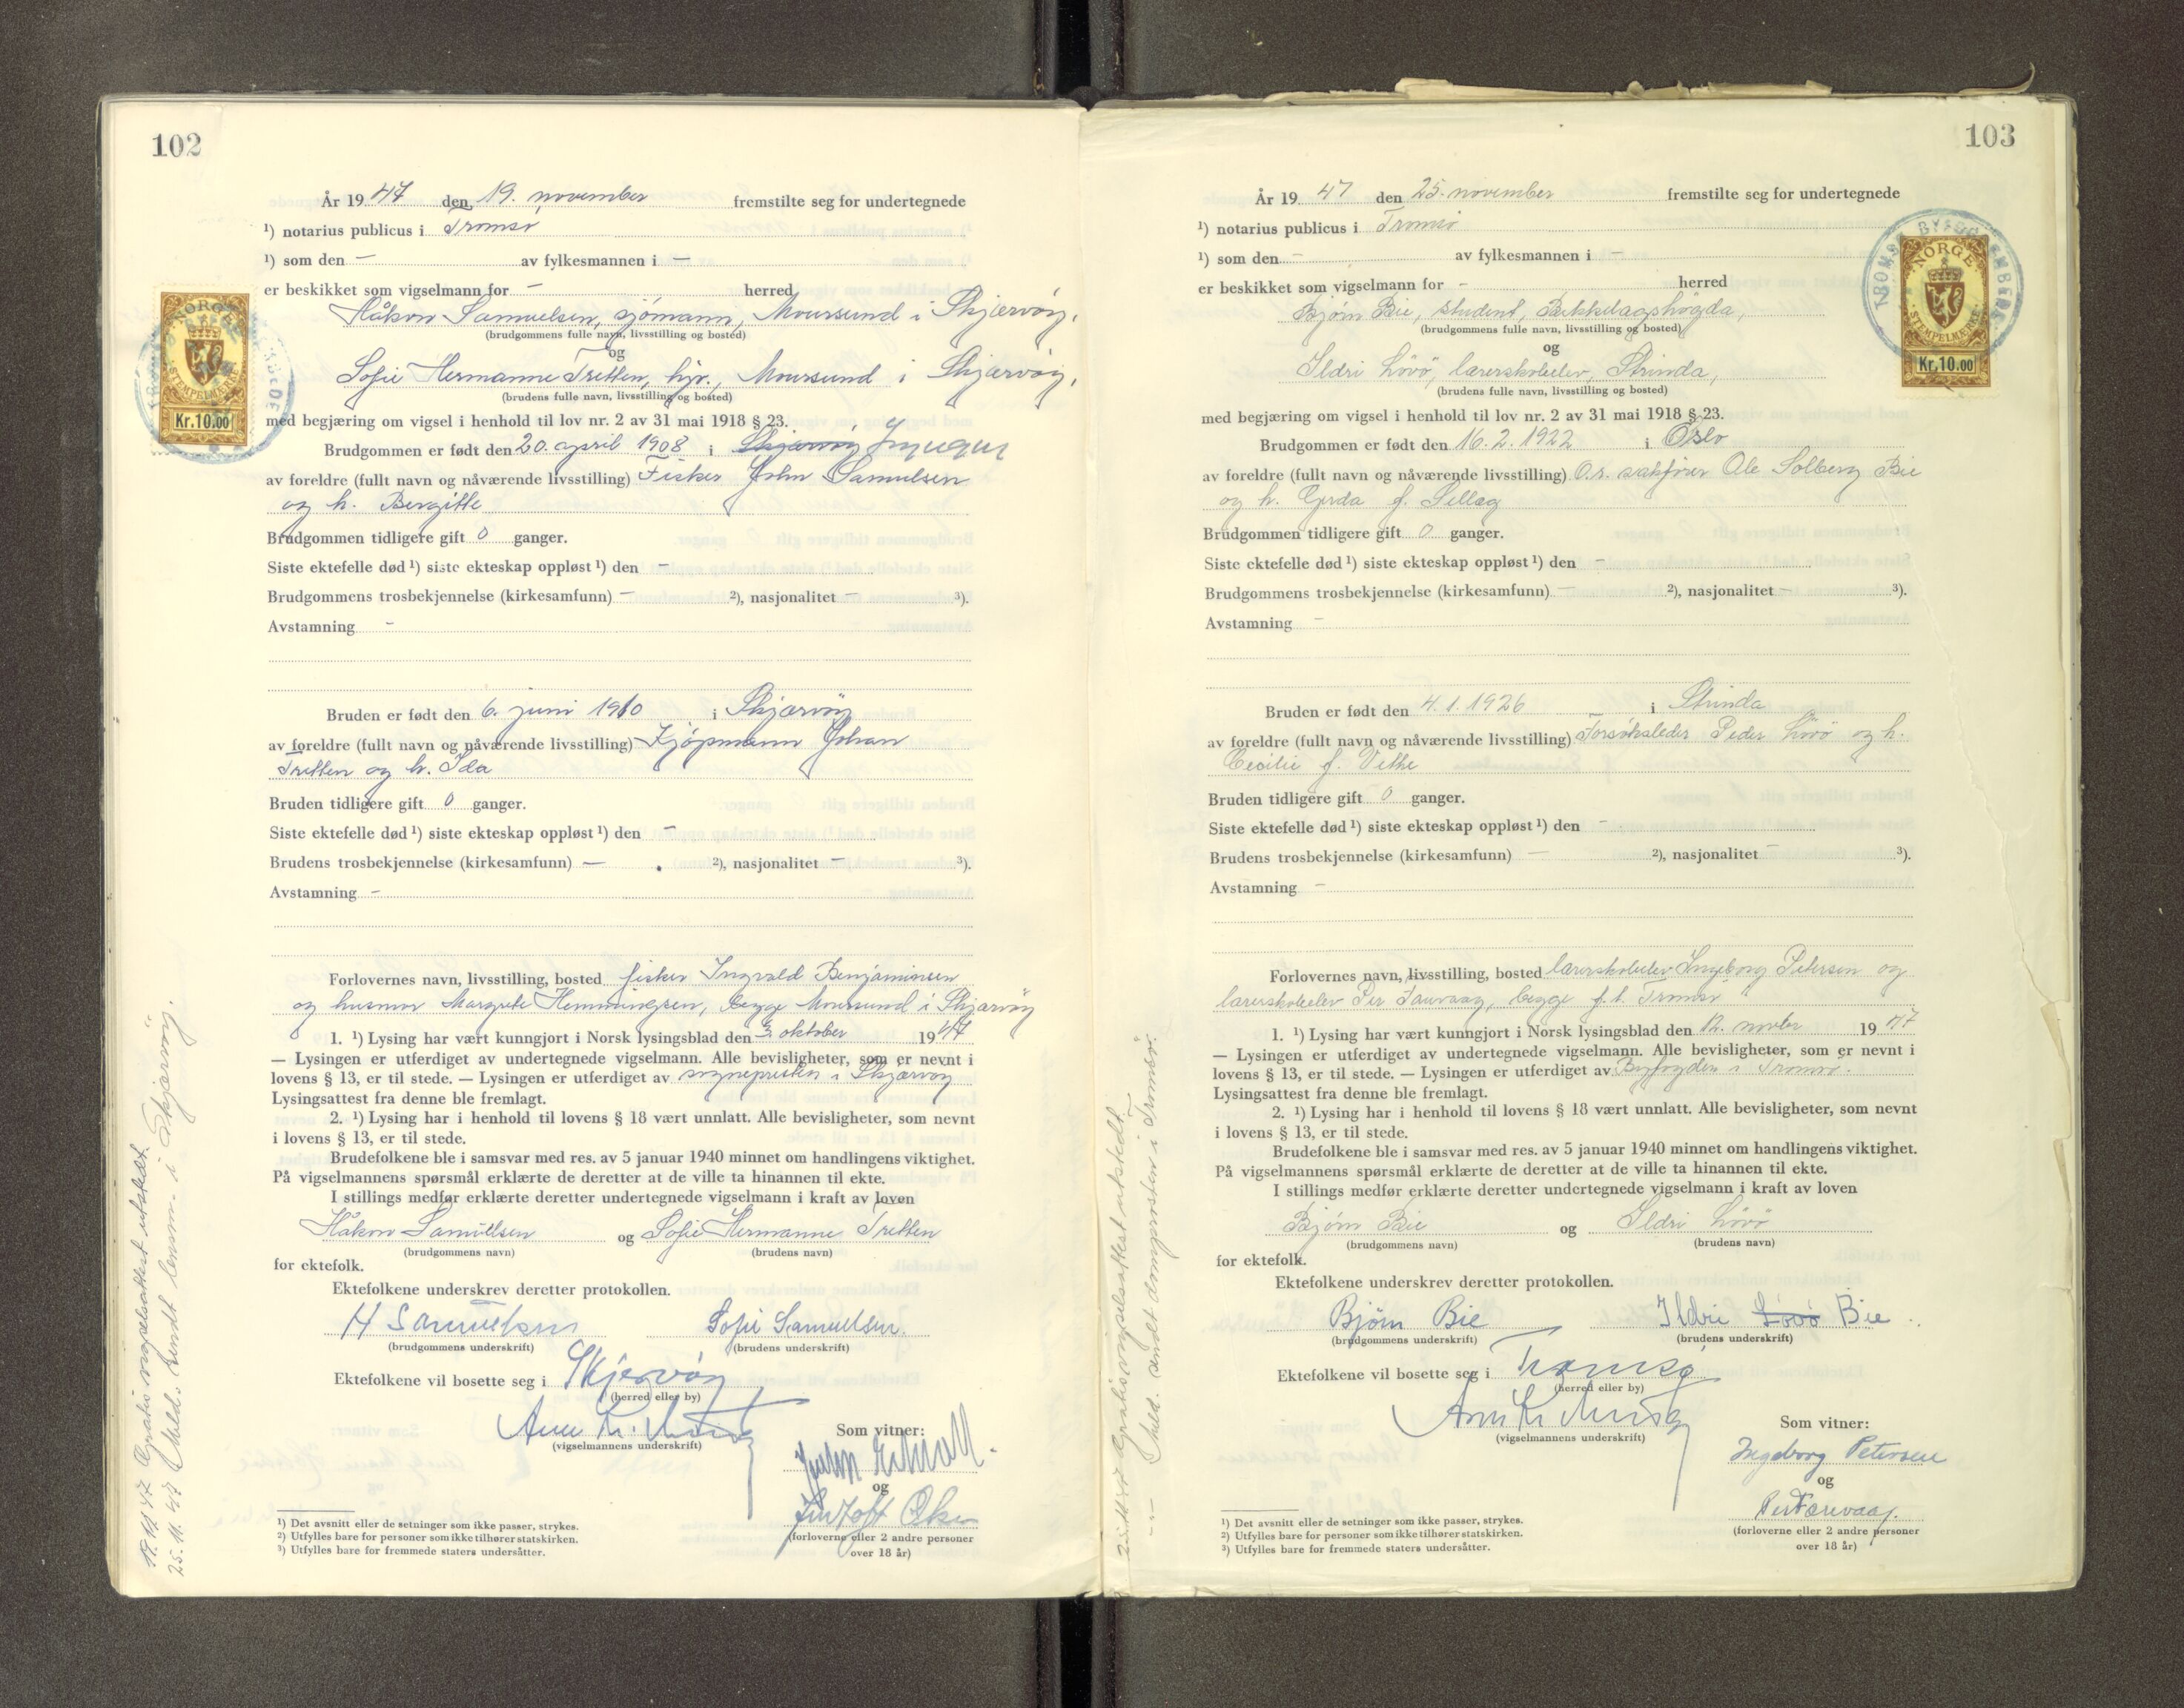 102
År 1947 den 19. november fremstilte seg for undertegnede
¹) notarius publicus i Tromsö
¹) som den – av fylkesmannen i –
er beskikket som vigselmann for – herred
Håkon Samuelsen, sjömann, Moursund i Skjærvöy,
(brudgommens fulle navn, livsstilling og bosted)
og
Sofie Hermanne Tretten, hjv., Moursund i Skjærvöy,
(brudens fulle navn, livsstilling og bosted)
NORGE
STEMPELMERKE
Kr.10.00
med begjæring om vigsel i henhold til lov nr. 2 av 31 mai 1918 § 23.
Brudgommen er født den 20. april 1908 i Skjærvöy
av foreldre (fullt navn og nåværende livsstilling) Fisker John Samuelsen
og h. Bergitte
Brudgommen tidligere gift 0 ganger.
Siste ektefelle død ¹) siste ekteskap oppløst ¹) den –
Brudgommens trosbekjennelse (kirkesamfunn) – ²), nasjonalitet – ³).
Avstamning –
Bruden er født den 6. juni 1910 i Skjærvöy
av foreldre (fullt navn og nåværende livsstilling) Kjöpmann Johan
Tretten og h. Ida
Bruden tidligere gift 0 ganger.
Siste ektefelle død ¹) siste ekteskap oppløst ¹) den –
Brudens trosbekjennelse (kirkesamfunn) — ²), nasjonalitet – ³).
Avstamning –
Forlovernes navn, livsstilling, bosted fisker Ingvald Benjaminsen
og husmor Margrete Hemmingsen, begge Moursund i Skjærvöy
1. ¹) Lysing har vært kunngjort i Norsk lysingsblad den 3. oktober 1947
— Lysingen er utferdiget av undertegnede vigselmann. Alle bevisligheter, som er nevnt i
lovens § 13, er til stede. — Lysingen er utferdiget av sognepresten i Skjærvöy
Lysingsattest fra denne ble fremlagt.
2. ¹) Lysing har i henhold til lovens § 18 vært unnlatt. Alle bevisligheter, som nevnt
i lovens § 13, er til stede.
Brudefolkene ble i samsvar med res. av 5 januar 1940 minnet om handlingens viktighet.
På vigselmannens spørsmål erklærte de deretter at de ville ta hinannen til ekte.
I stillings medfør erklærte deretter undertegnede vigselmann i kraft av loven
Håkon Samuelsen og Sofie Hermanne Tretten
(brudgommens navn) (brudens navn)
for ektefolk.
Ektefolkene underskrev deretter protokollen.
H Samuelsen Sofie Samuelsen.
(brudgommens underskrift) (brudens underskrift)
Ektefolkene vil bosette seg i Skjervöy
(herred eller by)
(vigselmannens underskrift)
Som vitner:
og
(forloverne eller 2 andre personer
over 18 år)
¹) Det avsnitt eller de setninger som ikke passer, strykes.
²) Utfylles bare for personer som ikke tilhører statskirken.
³) Utfylles bare for fremmede staters undersåtter.
19.11.47 Gratis vigselsattest utstedt.
25.11.47 Meld. sendt lensm. i Skjærvöy.
103
År 1947 den 25. november fremstilte seg for undertegnede
¹) notarius publicus i Tromsö
¹) som den – av fylkesmannen i –
er beskikket som vigselmann for – herred
Björn Bie, student, Bekkelagshögda,
(brudgommens fulle navn, livsstilling og bosted)
og
Ildri Lövö, lærerskoleelev, Strinda,
(brudens fulle navn, livsstilling og bosted)
NORGE
STEMPELMERKE
Kr.10.00
med begjæring om vigsel i henhold til lov nr. 2 av 31 mai 1918 § 23.
Brudgommen er født den 16.2.1922 i Oslo
av foreldre (fullt navn og nåværende livsstilling) O.r. sakfører Ole Solberg Bie
og h. Gerda f. Sellæg
Brudgommen tidligere gift 0 ganger.
Siste ektefelle død ¹) siste ekteskap oppløst ¹) den –
Brudgommens trosbekjennelse (kirkesamfunn) – ²), nasjonalitet – ³).
Avstamning –
Bruden er født den 4.1.1926 i Strinda
av foreldre (fullt navn og nåværende livsstilling) Forsöksleder Peder Lövö og h.
Cecilie f. Vethe
Bruden tidligere gift 0 ganger.
Siste ektefelle død ¹) siste ekteskap oppløst ¹) den –
Brudens trosbekjennelse (kirkesamfunn) — ²), nasjonalitet – ³).
Avstamning –
Forlovernes navn, livsstilling, bosted lærerskoleelev Ingeborg Petersen og
lærerskoleelev Per Tauvaag, begge f.t. Tromsö
1. ¹) Lysing har vært kunngjort i Norsk lysingsblad den 12. novbr 1947
— Lysingen er utferdiget av undertegnede vigselmann. Alle bevisligheter, som er nevnt i
lovens § 13, er til stede. — Lysingen er utferdiget av Byfogden i Tromsö.
Lysingsattest fra denne ble fremlagt.
2. ¹) Lysing har i henhold til lovens § 18 vært unnlatt. Alle bevisligheter, som nevnt
i lovens § 13, er til stede.
Brudefolkene ble i samsvar med res. av 5 januar 1940 minnet om handlingens viktighet.
På vigselmannens spørsmål erklærte de deretter at de ville ta hinannen til ekte.
I stillings medfør erklærte deretter undertegnede vigselmann i kraft av loven
Björn Bie og Ildri Lövö
(brudgommens navn) (brudens navn)
for ektefolk.
Ektefolkene underskrev deretter protokollen.
Bjørn Bie Ildri Lövö Bie
(brudgommens underskrift) (brudens underskrift)
Ektefolkene vil bosette seg i Tromsø
(herred eller by)
(vigselmannens underskrift)
Som vitner:
Ingeborg Petersen
og
(forloverne eller 2 andre personer
over 18 år)
¹) Det avsnitt eller de setninger som ikke passer, strykes.
²) Utfylles bare for personer som ikke tilhører statskirken.
³) Utfylles bare for fremmede staters undersåtter.
Gratis vigselsattest utstedt.
Meld. sendt domprosten i Tromsö.